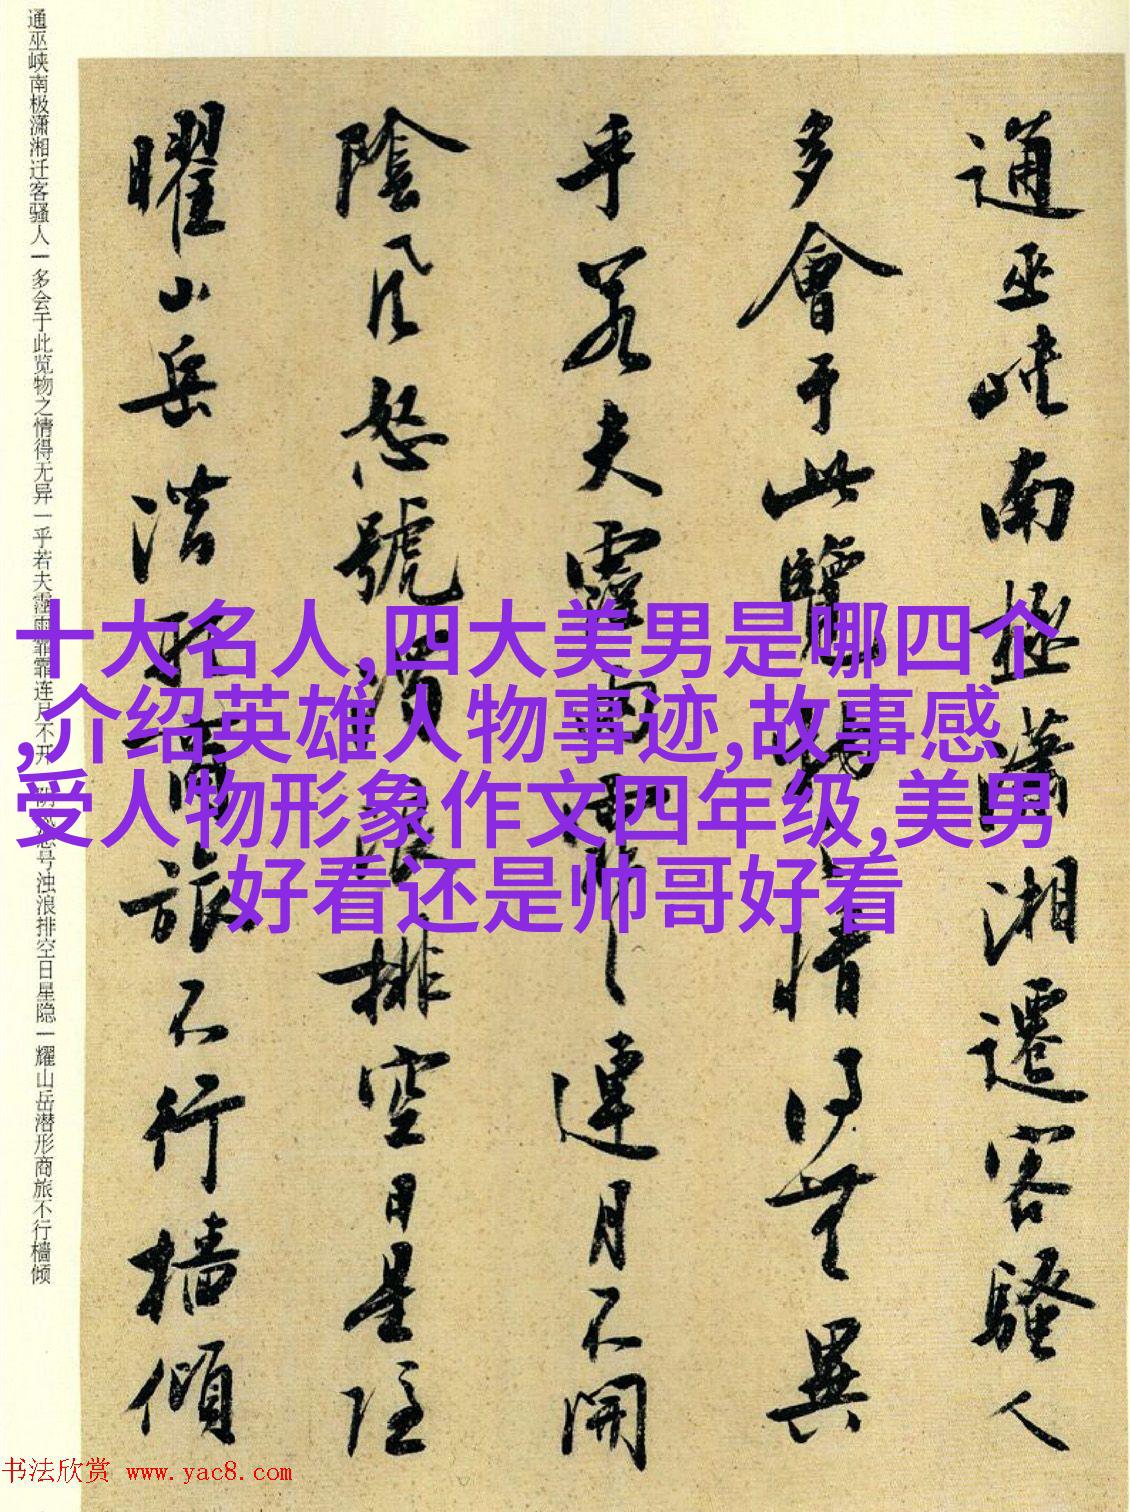 通巫峡南极潇湘迁客骚人一多会于此览物之情得无异一乎若夫霪雨霏霏连月不开一阴风怒号浊浪排空日星隐一耀山岳潜形商旅不行樯倾
通巫峡南極潇湘遷客騷人
多會于此覽物之情得無異
乎若夫霪雨霏霏連月不開
陰風怒號濁浪排空日星隐
曜山岳潜形商旅不行檣傾
十大名人,四大美男是哪四个
,介绍英雄人物事迹,故事感
受人物形象作文四年级,美男
好看还是帅哥好看
书法欣赏 www.yac8.com